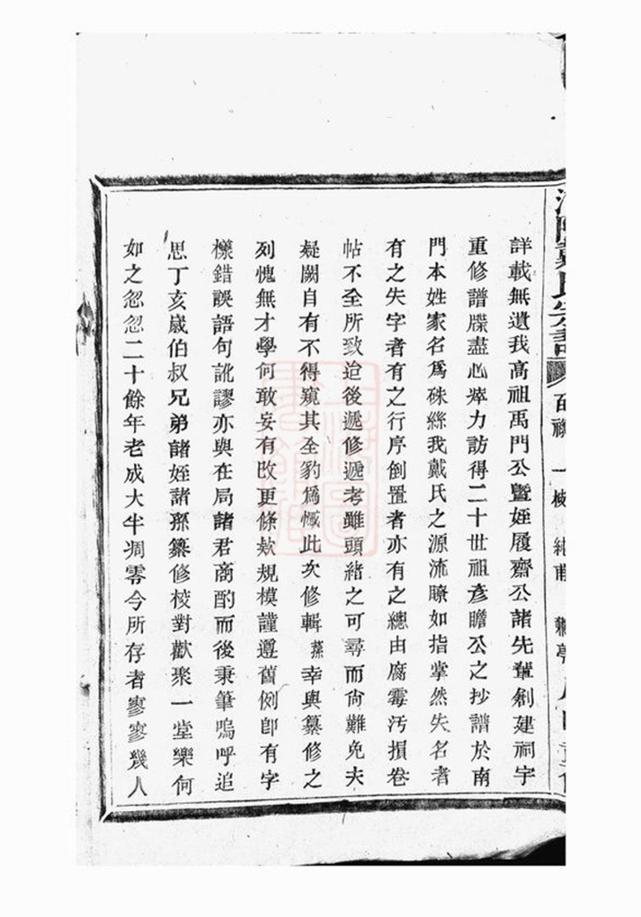 戴氏宗譜
詳載無遺我高祖禹門公曁姪履齋公諸先輩剏建祠宇
重修譜牒盡心瘁力訪得二十世祖彥瞻公之抄譜於南
門本姓家名爲硃絲我戴氏之源流瞭如指掌然失名者
有之失字者有之行序倒置者亦有之總由腐霉汚損卷
帖不全所致迨後遞修遞考雖頭緖之可尋而尙難免夫
疑闕自有不得窺其全豹爲慨此次修輯蓀幸與纂修之
列愧無才學何敢妄有改更條欵規模謹遵舊例卽有字
樣錯誤語句訛謬亦與在局諸君商酌而後秉筆嗚呼追
思丁亥歲伯叔兄弟諸姪諸孫纂修校對歡聚一堂樂何
如之忽忽二十餘年老成大半凋零今所存者寥寥幾人